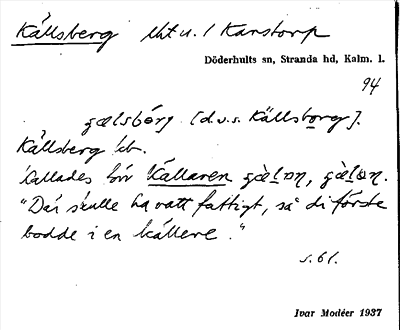 Källsberg lht u. / Karstorp
Döderhults sn, Stranda hd, Kalm. l.
94
gælsbórg [d.v.s. Källsborg].
Källsberg
kallades förr Källaren gæ̀lon, gæ̀lon.
"Där skulle ha vatt fattigt, så di förste
bodde i en källere."
s. 61.
Ivar Modéer 1937